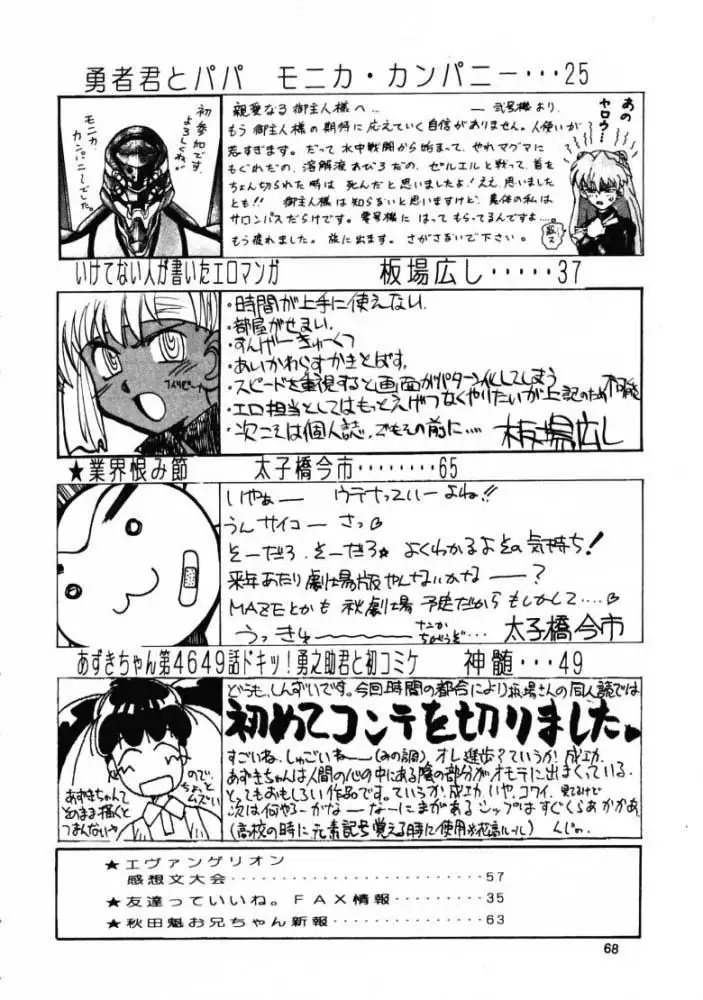 勇者君とパパ　モニカ・カンパニー・・・25
初参加です。
よろしくね!
モニカ
カンパニ〜でした。
親愛なる御主人様へ‥ ―弐号機より
もう御主人様の期待に応えていく自信がありません。人使いが
荒すぎます。だって水中戦闘から始まって、やれマグマに
もぐれだの、溶解液あびろだの、ゼルエルと戦って首を
ちょん切られた時は死んだと思いましたよ!ええ、思いました
とも!!　御主人様は知らないと思いますけど、裏体の私は
サロンパスだらけです。零号機にはってもらってるんですよ‥‥。
もう疲れました。旅に出ます。さがさないで下さい。
あの
ヤロウ
いけてない人が書いたエロマンガ　板場広し・・・・・37
・時間が上手に使えない。
・部屋がせまい。
・すんげーきゅーくつ
・あいかわらずかきとばす。
・スピードを重視すると画面がパターン化してしまう
・エロ担当としてはもっとえげつなくやりたいが上記のため
・次こそは個人誌。でもその前に‥‥
板場広し
★業界恨み節　太子橋今市・・・・・・・・65
いやぁー　ウテナっていーよね!!
うんサイコーさっ
そーだろ、そーだろ☆　よくわかるよその気持ち!
来年あたり劇場版やんないかな――?
MAZEとかも秋劇場予定だからもしかして‥‥
うっきゅ〜
なにか
ちがうぞ‥‥
太子橋今市
あずきちゃん第4649話ドキッ!勇之助君と初コミケ　神髄・・・49
あずきちゃんて
そのまま描くと
つまんないっ
ので、
ちょっと
ムズい
どうも、しんずいです。今回時間の都合により板場さんの同人誌では
初めてコンテを切りました。
すごいね、しゅごいね――(みの調)オレ進歩?ていうか、成功。
あずきちゃんは人間の心の中にある陰の部分がオモテに出まくっている、
とってもおもしろい作品です。ていうか、成功、いや、コワイ、見ておけで
次は何やろーかなーなーにまがあるシップはすぐくらあかかあ。
(高校の時に元素記号覚える時に使用　ルール)　んじの
★エヴァンゲリオン
感想文大会・・・・・・・・・・・・・・・・・・・・・・・・57
★友達っていいね。FAX情報・・・・・・・・・・・35
★秋田魁お兄ちゃん新報・・・・・・・・・・・・・・・63
68